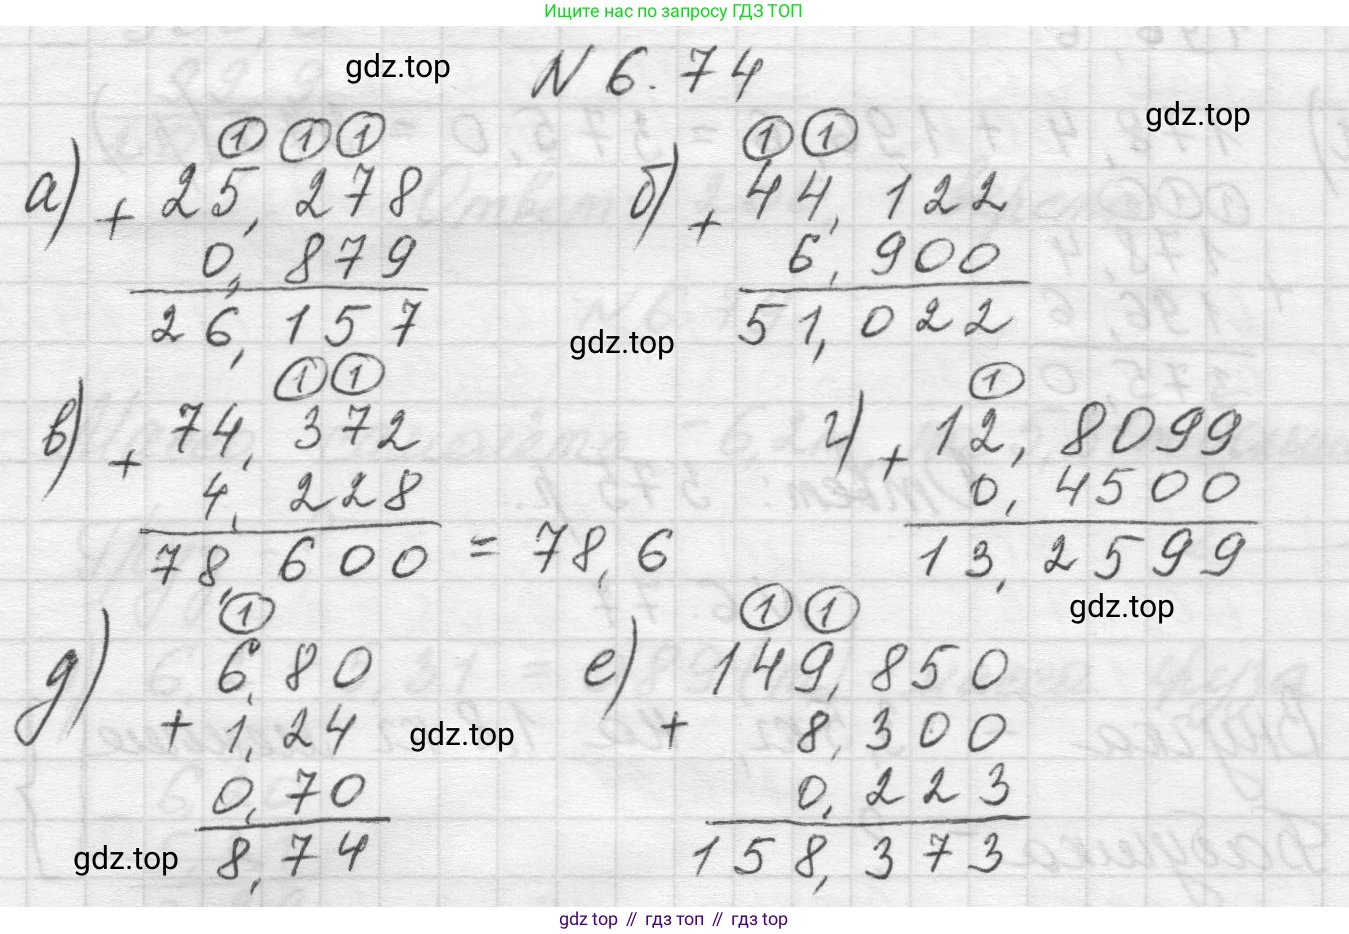 Ищите нас по запросу ГДЗ ТОП
gdz.top
N 6.74
gdz.top
а)
1 1 1
+ 25,278
0,879
26,157
б)
1 1
+ 44,122
6,900
51,022
gdz.top
в)
1 1
+ 74,372
4,228
78,600 = 78,6
г)
1
+ 12,8099
0,4500
13,2599
gdz.top
д)
1
6,80
+ 1,24
0,70
8,74
gdz.top
е)
1 1
149,850
+ 8,300
0,223
158,373
gdz.top
gdz top // гдз топ // гдз top